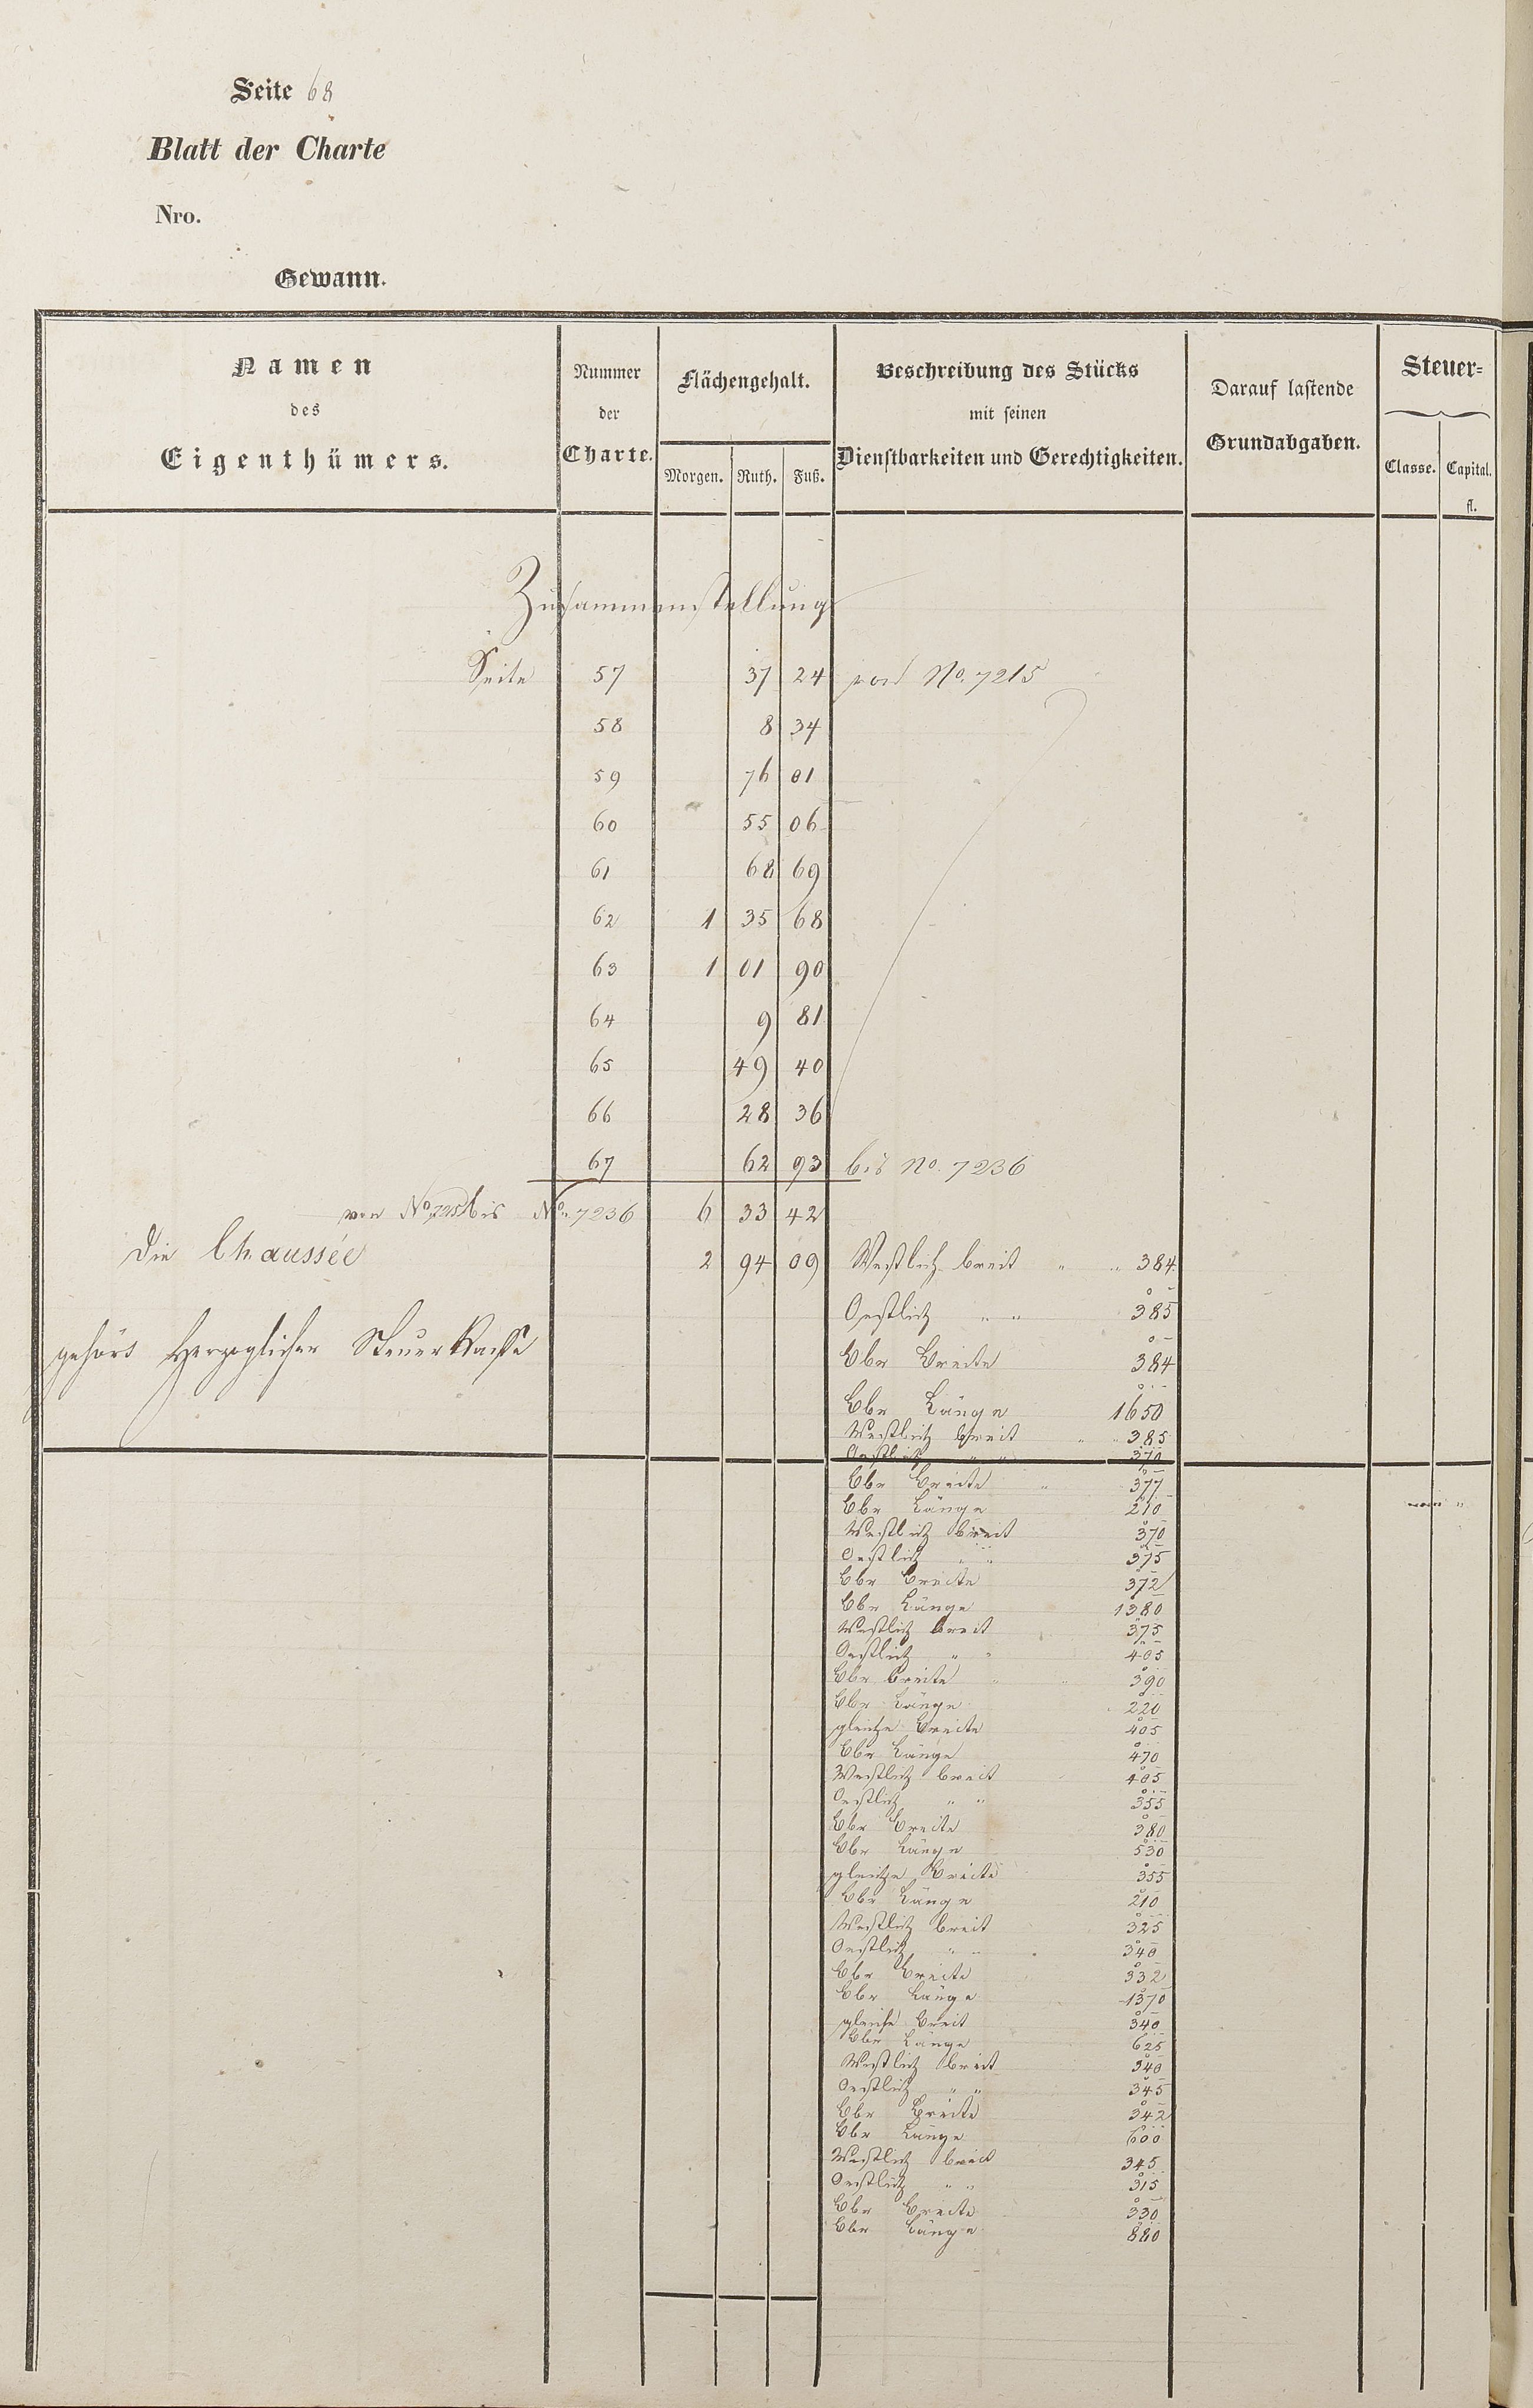 Seite 68
Blatt der Charte
Nro.
Gewann.
Namen des Eigenthümers.
Nummer der Charte.
Flächengehalt.
Morgen. Ruth. Fuß.
Beschreibung des Stücks mit seinen Dienstbarkeiten und Gerechtigkeiten.
Darauf lastende Grundabgaben.
Steuer-
Classe. Capital. fl.
Zusammenstellung
Seite 57 37 24 von No. 7215
58 8 34
59 76 01
60 55 06
61 68 69
62 1 35 68
63 1 01 90
64 9 81
65 49 40
66 28 36
67 62 93 bis No. 7236
von No. 7215 bis No. 7236 6 33 42
Die Chaussée 2 94 09 Westlich breit " " 384
Oestlich " " 385
gehört Herzoglicher Steuer Kasse
Ebr Breite 384
Ebr Länge 1650
Westlich breit " " 385
Oestlich " " 370
Ebr Breite " 377
Ebr Länge 210
Westlich breit 370
Oestlich " " 375
Ebr Breite 372
Ebr Länge 1380
Westlich breit 375
Oestlich " " 405
Ebr Breite " " 390
Ebr Länge 220
gleiche Breite 405
Ebr Länge 470
Westlich breit 405
Oestlich " " 355
Ebr Breite 380
Ebr Länge 530
gleiche Breite 355
Ebr Länge 210
Westlich breit 325
Oestlich " " 340
Ebr Breite 332
Ebr Länge 1370
gleiche Breit 340
Ebr Länge 625
Westlich breit 340
Oestlich " " 345
Ebr Breite 342
Ebr Länge 600
Westlich breit 345
Oestlich " " 315
Ebr Breite 330
Ebr Länge 880